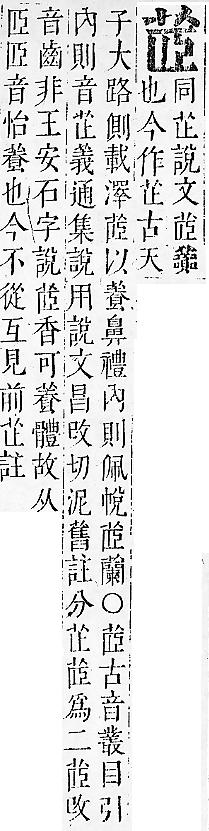 茝
同芷說文茝虈
也今作芷古天
子大路側載澤茝以養鼻禮內則佩帨茝蘭○茝古音叢目引
內則音芷義通集說用說文昌攺切泥舊註分芷茝爲二茝攺
音齒非王安石字說茝香可養體故从
𦣝𦣝音怡養也今不從互見前芷註